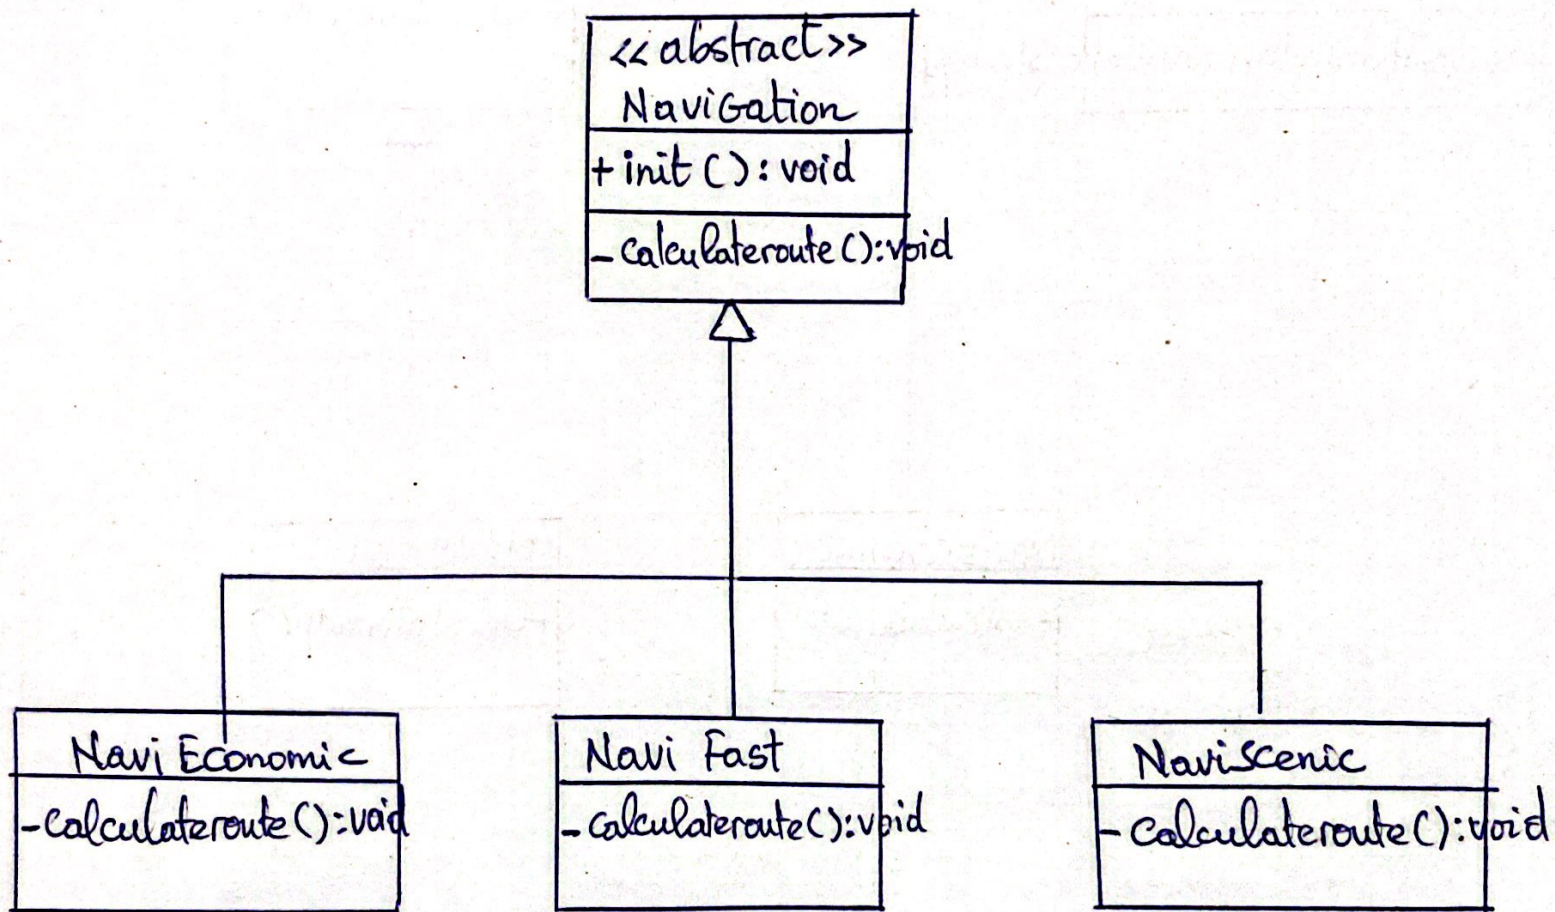 <<abstract>>
NaviGation
+ init(): void
- calculateroute():void
Navi Economic
- calculateroute():void
Navi Fast
- calculateroute():void
NaviScenic
- calculateroute():void